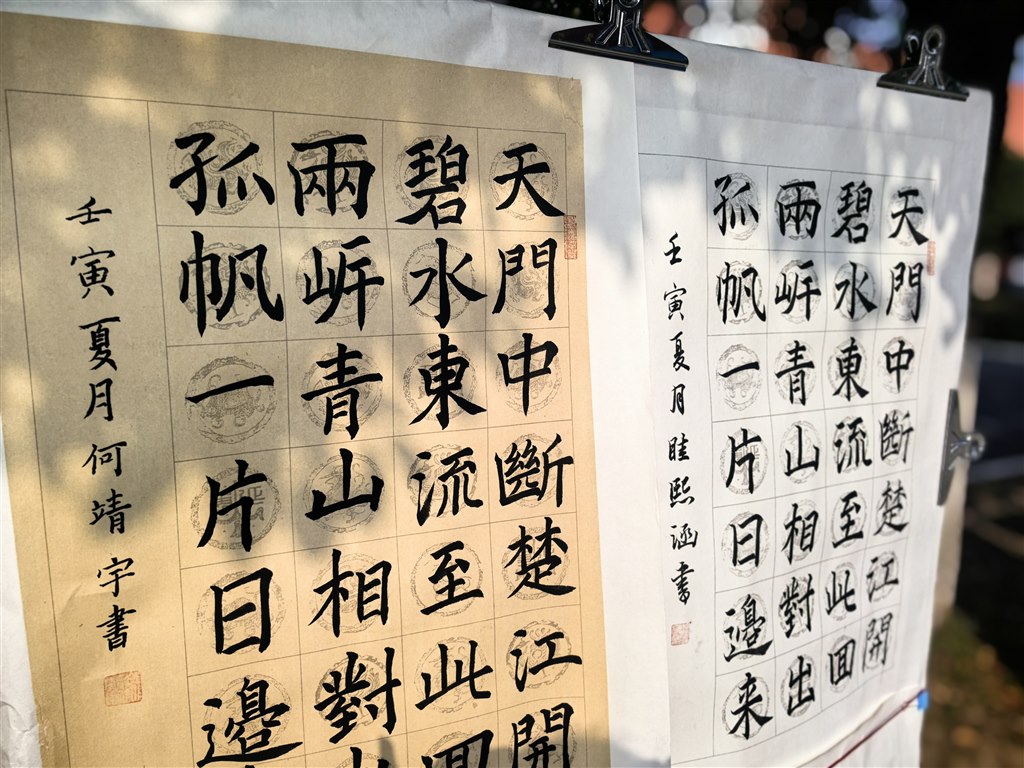 天門中斷楚江開
碧水東流至此囬
兩岍青山相對
孤帆一片日邊
壬寅夏月何靖宇書
天門中斷楚江開
碧水東流至此囬
兩岍青山相對出
孤帆一片日邊来
壬寅夏月眭熙涵書